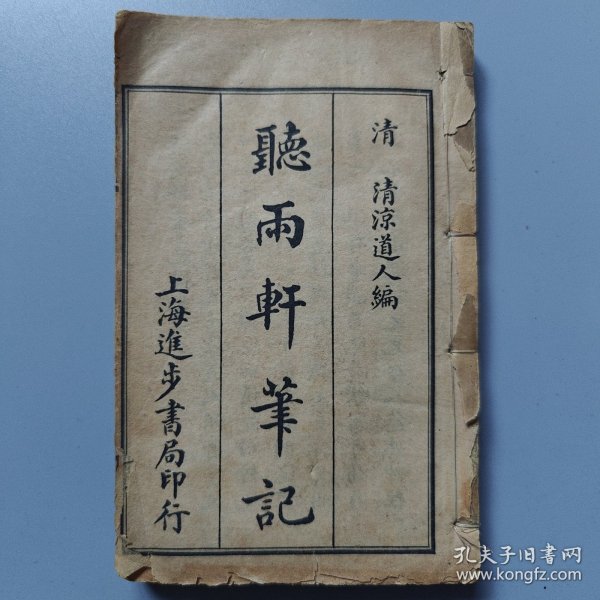 清 清涼道人編
聽雨軒筆記
上海進步書局印行
孔夫子旧书网
www.kongfz.com